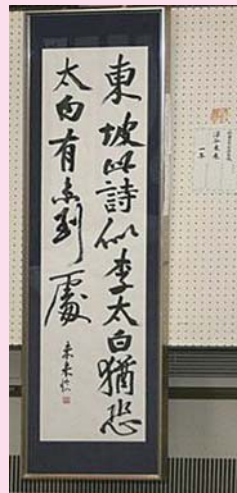 東坡此詩似李太白猶恐
太白有未到處
一年